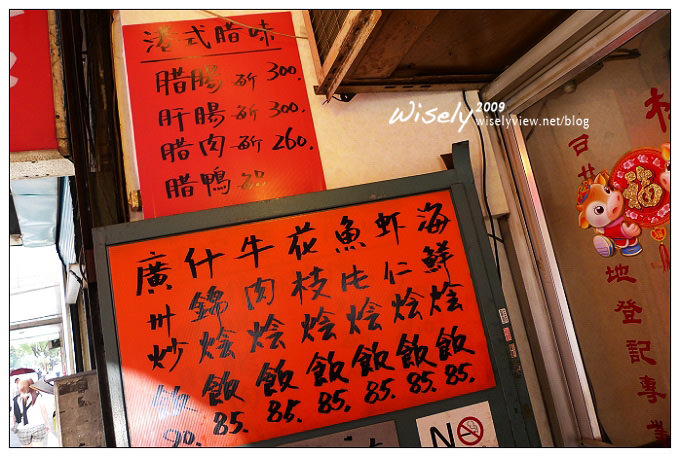 港式腊味
腊腸 斤 300.
肝腸 斤 300.
腊肉 斤 260.
腊鴨
Wisely 2009
wiselyview.net/blog
海鮮燴飯 85.
虾仁燴飯 85.
魚片燴飯 85.
花枝燴飯 85.
牛肉燴飯 85.
什錦燴飯 85.
廣州炒飯 90.
福
地登記專業
N